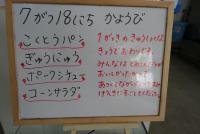 7がつ18にち かようび
こくとうパン
ぎゅうにゅう
ポークシチュー
コーンサラダ
1がっきの きゅうしょくは
きょうで おわりです。
みんな
おいしかった
あつく
げんきに すごしてください。